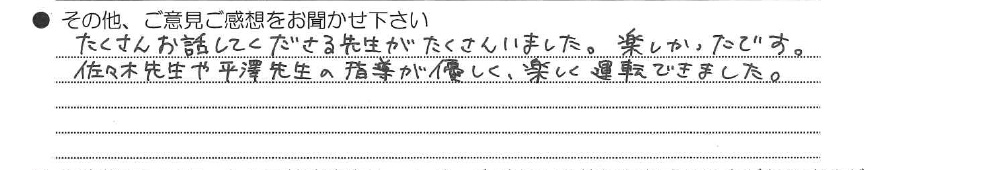 ● その他、ご意見ご感想をお聞かせ下さい
たくさんお話してくださる先生がたくさんいました。楽しかったです。
佐々木先生や平澤先生の指導が優しく、楽しく運転できました。